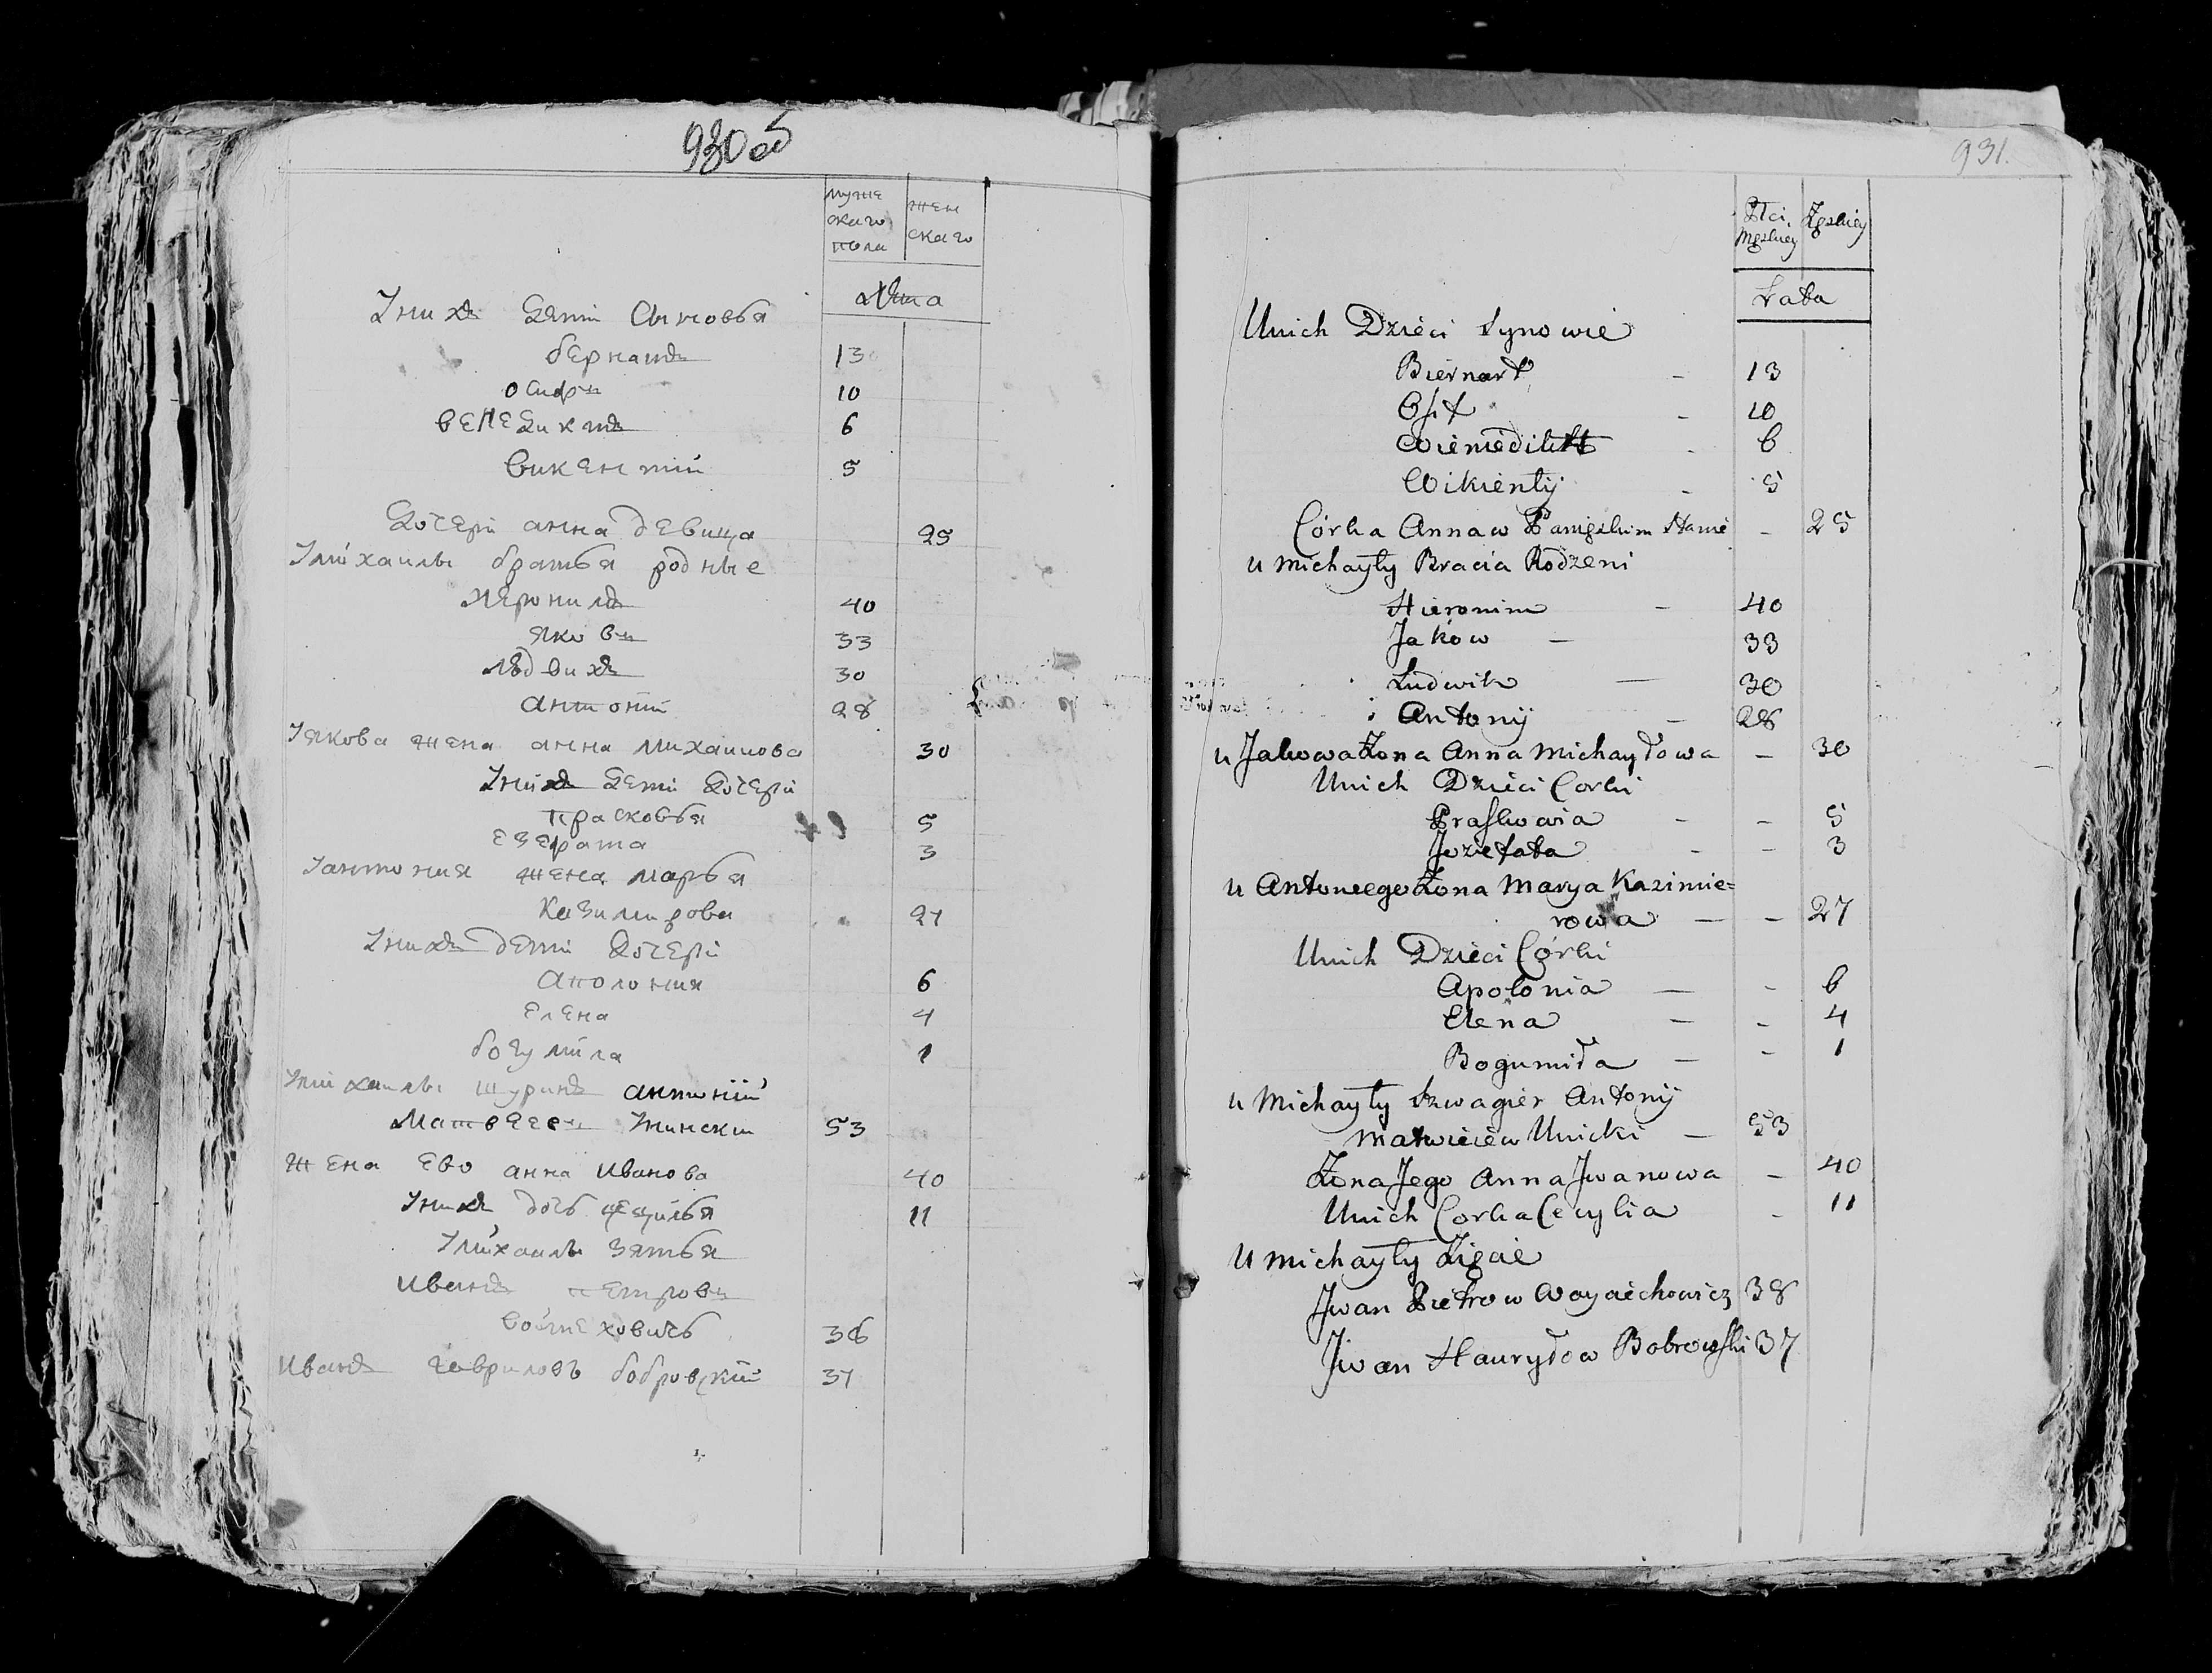 930 об
муже
скаго
пола
жен
скаго
Лѣта
Унихъ Дѣти Сыновья
бернатъ 13
осифъ 10
венедиктъ 6
викентiй 5
Дочери анна девица 25
Умихаилы братья родные
Иеронимъ 40
яковъ 33
людвихъ 30
антонiй 28
Уякова жена анна михаилова 30
Унихъ Дети Дочери
прасковья 5
езефата 3
Уантония жена марья
казимирова 27
Унихъ дети Дочери
аполония 6
елена 4
богумила 1
Умихаилы шуринъ антонiй
Матвѣевъ Уницки 53
жена ево анна Иванова 40
Унихъ дочь цецилья 11
Умихаилы зятья
иванъ петровъ
войцеховичъ 38
иванъ гавриловъ бобровскiй 37
931.
Płci
Męzkiey
Żęzkiey
Łata
Unich Dzieci Synowie
Biernart - 13
Osif - 10
Wieniedikt - 6
Wikienty - 5
Córka Anna w Panięzkim Stanie - 25
u Michayły Bracia Rodzeni
Hieronim - 40
Jakow - 33
Ludwik - 30
i Antonij - 28
u Jakowa Żona Anna Michayłowa - 30
Unich Dzieci Corki
Praskowia - - 5
Jozefata - - 3
u Antoniego Żona Marya Kazimie=
rowa - - 27
Unich Dzieci Córki
Apołonia - - 6
Elena - - 4
Bogumiła - - 1
u Michayły Szwagier Antonij
Matwieiew Unicki - 53
Żona Jego Anna Jwanowa - 40
Unich Corka Cecylia - 11
U Michayły Zięcie
Jwan Pietrow Woyciechowicz 38
Jwan Hauryłow Bobrowski 37